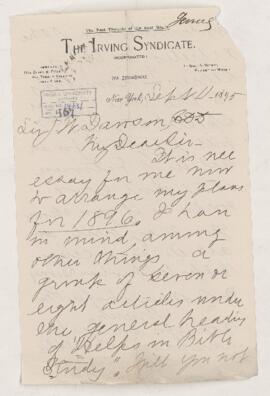 The Best Thought of the Best Minds
THE IRVING SYNDICATE.
INCORPORATED
New York, Sept 11 1895
Sir J W Dawson,
My Dear Sir -
It is nec
essary for me now
to arrange my plans
for 1896. I have
in mind, among
other things a
group of seven or
eight articles under
the general heading
of "Helps in Bible
Study". Will you not